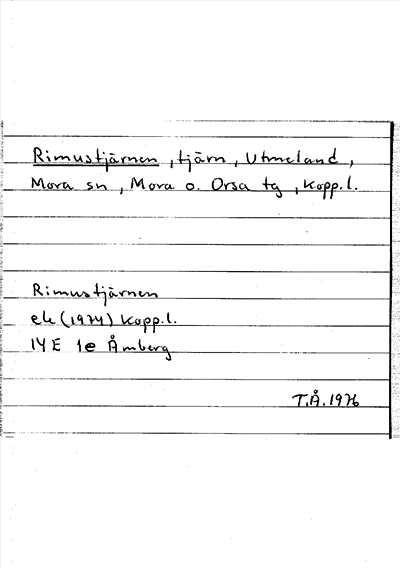 Rimustjärnen, tjärn, Utmeland,
Mora sn, Mora o. Orsa tg, Kopp.l.
Rimustjärnen
ek (1974) Kopp.l.
14E 1e Åmberg
T.Å. 1976